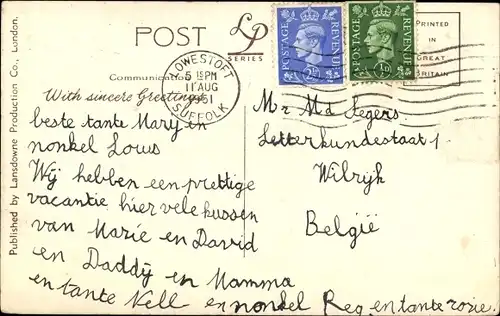 POST
LP
SERIES
PRINTED
IN
GREAT
BRITAIN
Published by Lansdowne Production Co., London.
POSTAGE REVENUE
2½D
POSTAGE REVENUE
½D
LOWESTOFT
5 15 PM
11 AUG
1951
SUFFOLK
Communication
With sincere Greetings
beste tante Mary en
nonkel Louis
Wij hebben een prettige
vacantie hier vele kussen
van Marie en David
en Daddy en Mamma
en tante Nell en nonkel Reg en tante rozie
Mr Md Segers
Letterkundestaat 1
Wilrijk
België